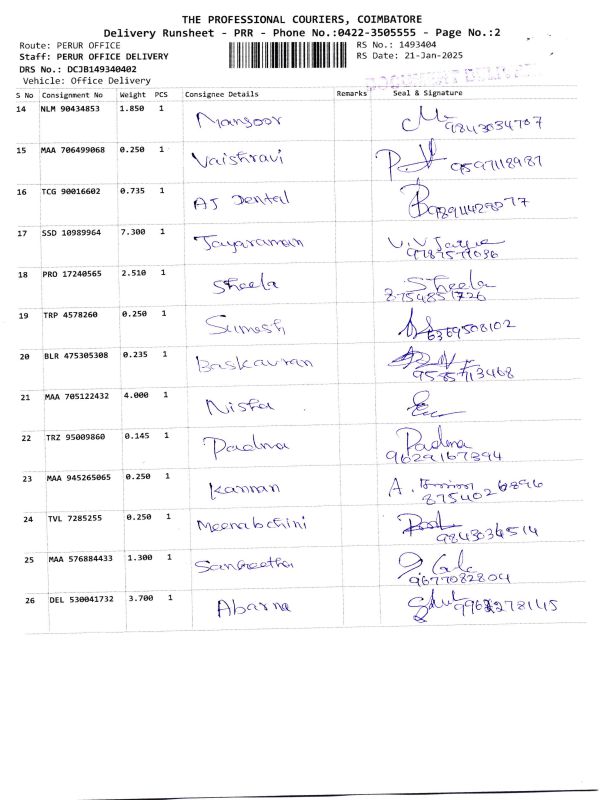 THE PROFESSIONAL COURIERS, COIMBATORE
Delivery Runsheet - PRR - Phone No.:0422-3505555 - Page No.:2
Route: PERUR OFFICE RS No.: 1493404
Staff: PERUR OFFICE DELIVERY RS Date: 21-Jan-2025
DRS No.: DCJB149340402
Vehicle: Office Delivery
S No Consignment No Weight PCS Consignee Details Remarks Seal & Signature
14 NLM 90434853 1.850 1 Mansoor
9843034707
15 MAA 706499068 0.250 1 Vaishnavi
9597118987
16 TCG 90016602 0.735 1 AJ Dental
17 SSD 10989964 7.300 1 Jayaraman
18 PRO 17240565 2.510 1 Sheela Sheela
8754851726
19 TRP 4578260 0.250 1 Sumesh
6369508102
20 BLR 475305308 0.235 1 Baskavran
9585713468
21 MAA 705122432 4.000 1 Nisha
22 TRZ 95009860 0.145 1 Padma Padma
9629167394
23 MAA 945265065 0.250 1 Kannan A.
8754026896
24 TVL 7285255 0.250 1 Meenabchini
25 MAA 576884433 1.300 1 Sangeetha
9677082804
26 DEL 530041732 3.700 1 Abarna